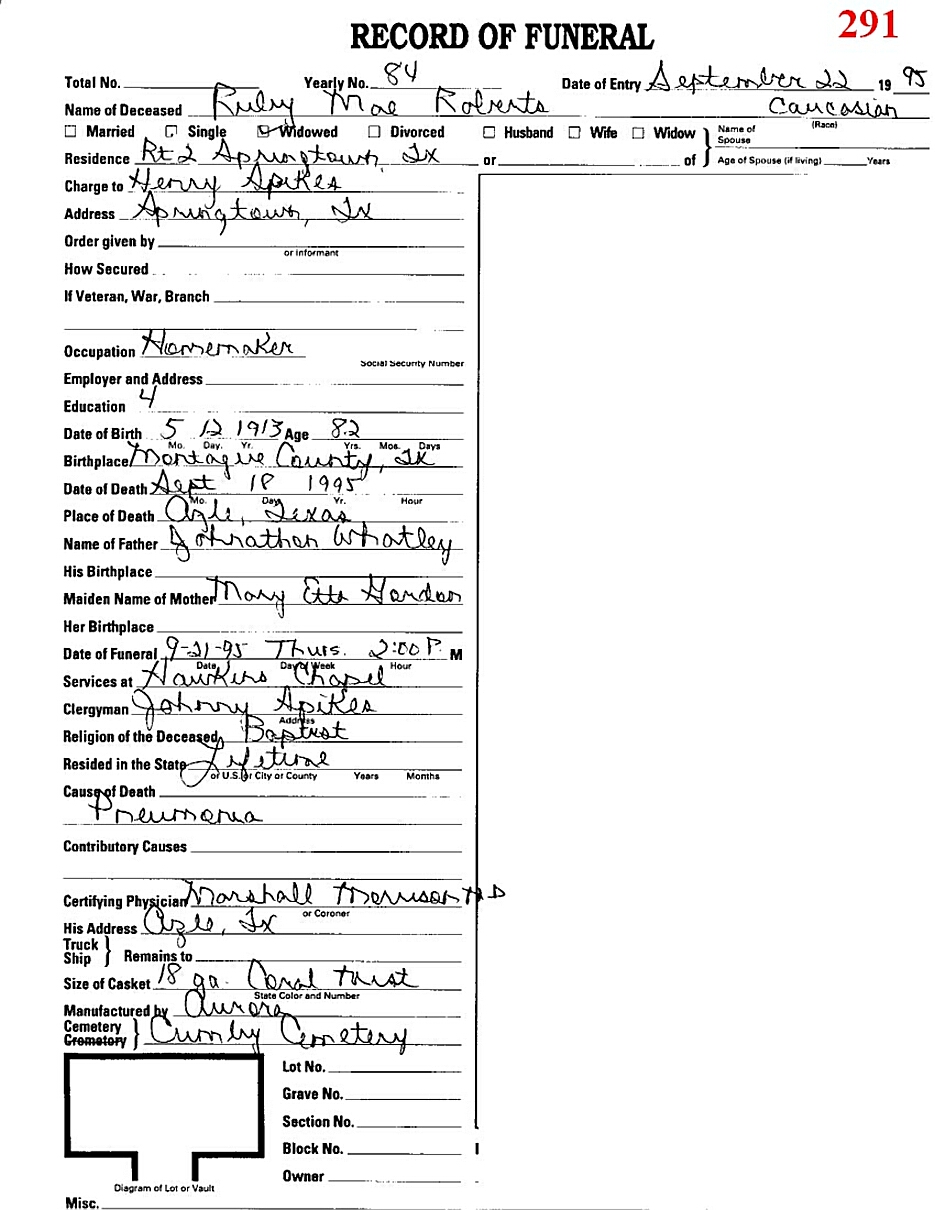 291
RECORD OF FUNERAL
Total No. Yearly No. 84 Date of Entry September 22 19 95
Name of Deceased Ruby Mae Roberts Caucasian
(Race)
Married Single Widowed Divorced Husband Wife Widow Name of Spouse
Residence Rt 2 Springtown, Tx or of Age of Spouse (if living) Years
Charge to Henry Spikes
Address Springtown, Tx
Order given by
or informant
How Secured
If Veteran, War, Branch
Occupation Homemaker
Social Security Number
Employer and Address
Education 4
Date of Birth 5 12 1913 Age 82
Mo. Day. Yr. Yrs. Mos. Days
Birthplace Montague County, Tx
Date of Death Sept 18 1995
Mo. Day Yr. Hour
Place of Death Azle, Texas
Name of Father Johnathon Whatley
His Birthplace
Maiden Name of Mother Mary Etta Gordon
Her Birthplace
Date of Funeral 9-21-95 Thurs. 2:00 P. M
Date Day of Week Hour
Services at Hawkins Chapel
Clergyman Johnny Spikes
Address
Religion of the Deceased Baptist
Resided in the State Lifetime
or U.S. or City or County Years Months
Cause of Death
Pneumonia
Contributory Causes
Certifying Physician Marshall Morrison MD
or Coroner
His Address Azle, Tx
Truck
Ship Remains to
Size of Casket 18 ga. Coral Mist
State Color and Number
Manufactured by Aurora
Cemetery
Crematory Cumby Cemetery
Lot No.
Grave No.
Section No.
Block No.
Owner
Diagram of Lot or Vault
Misc.